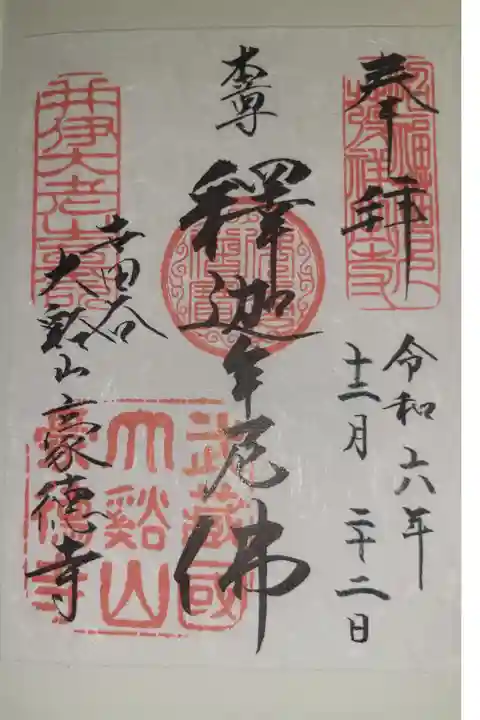 奉拝
令和六年
十二月 二十二日
本尊
釋迦牟尼佛
世田谷
大谿山豪德寺
武藏國
大谿山
豪德寺